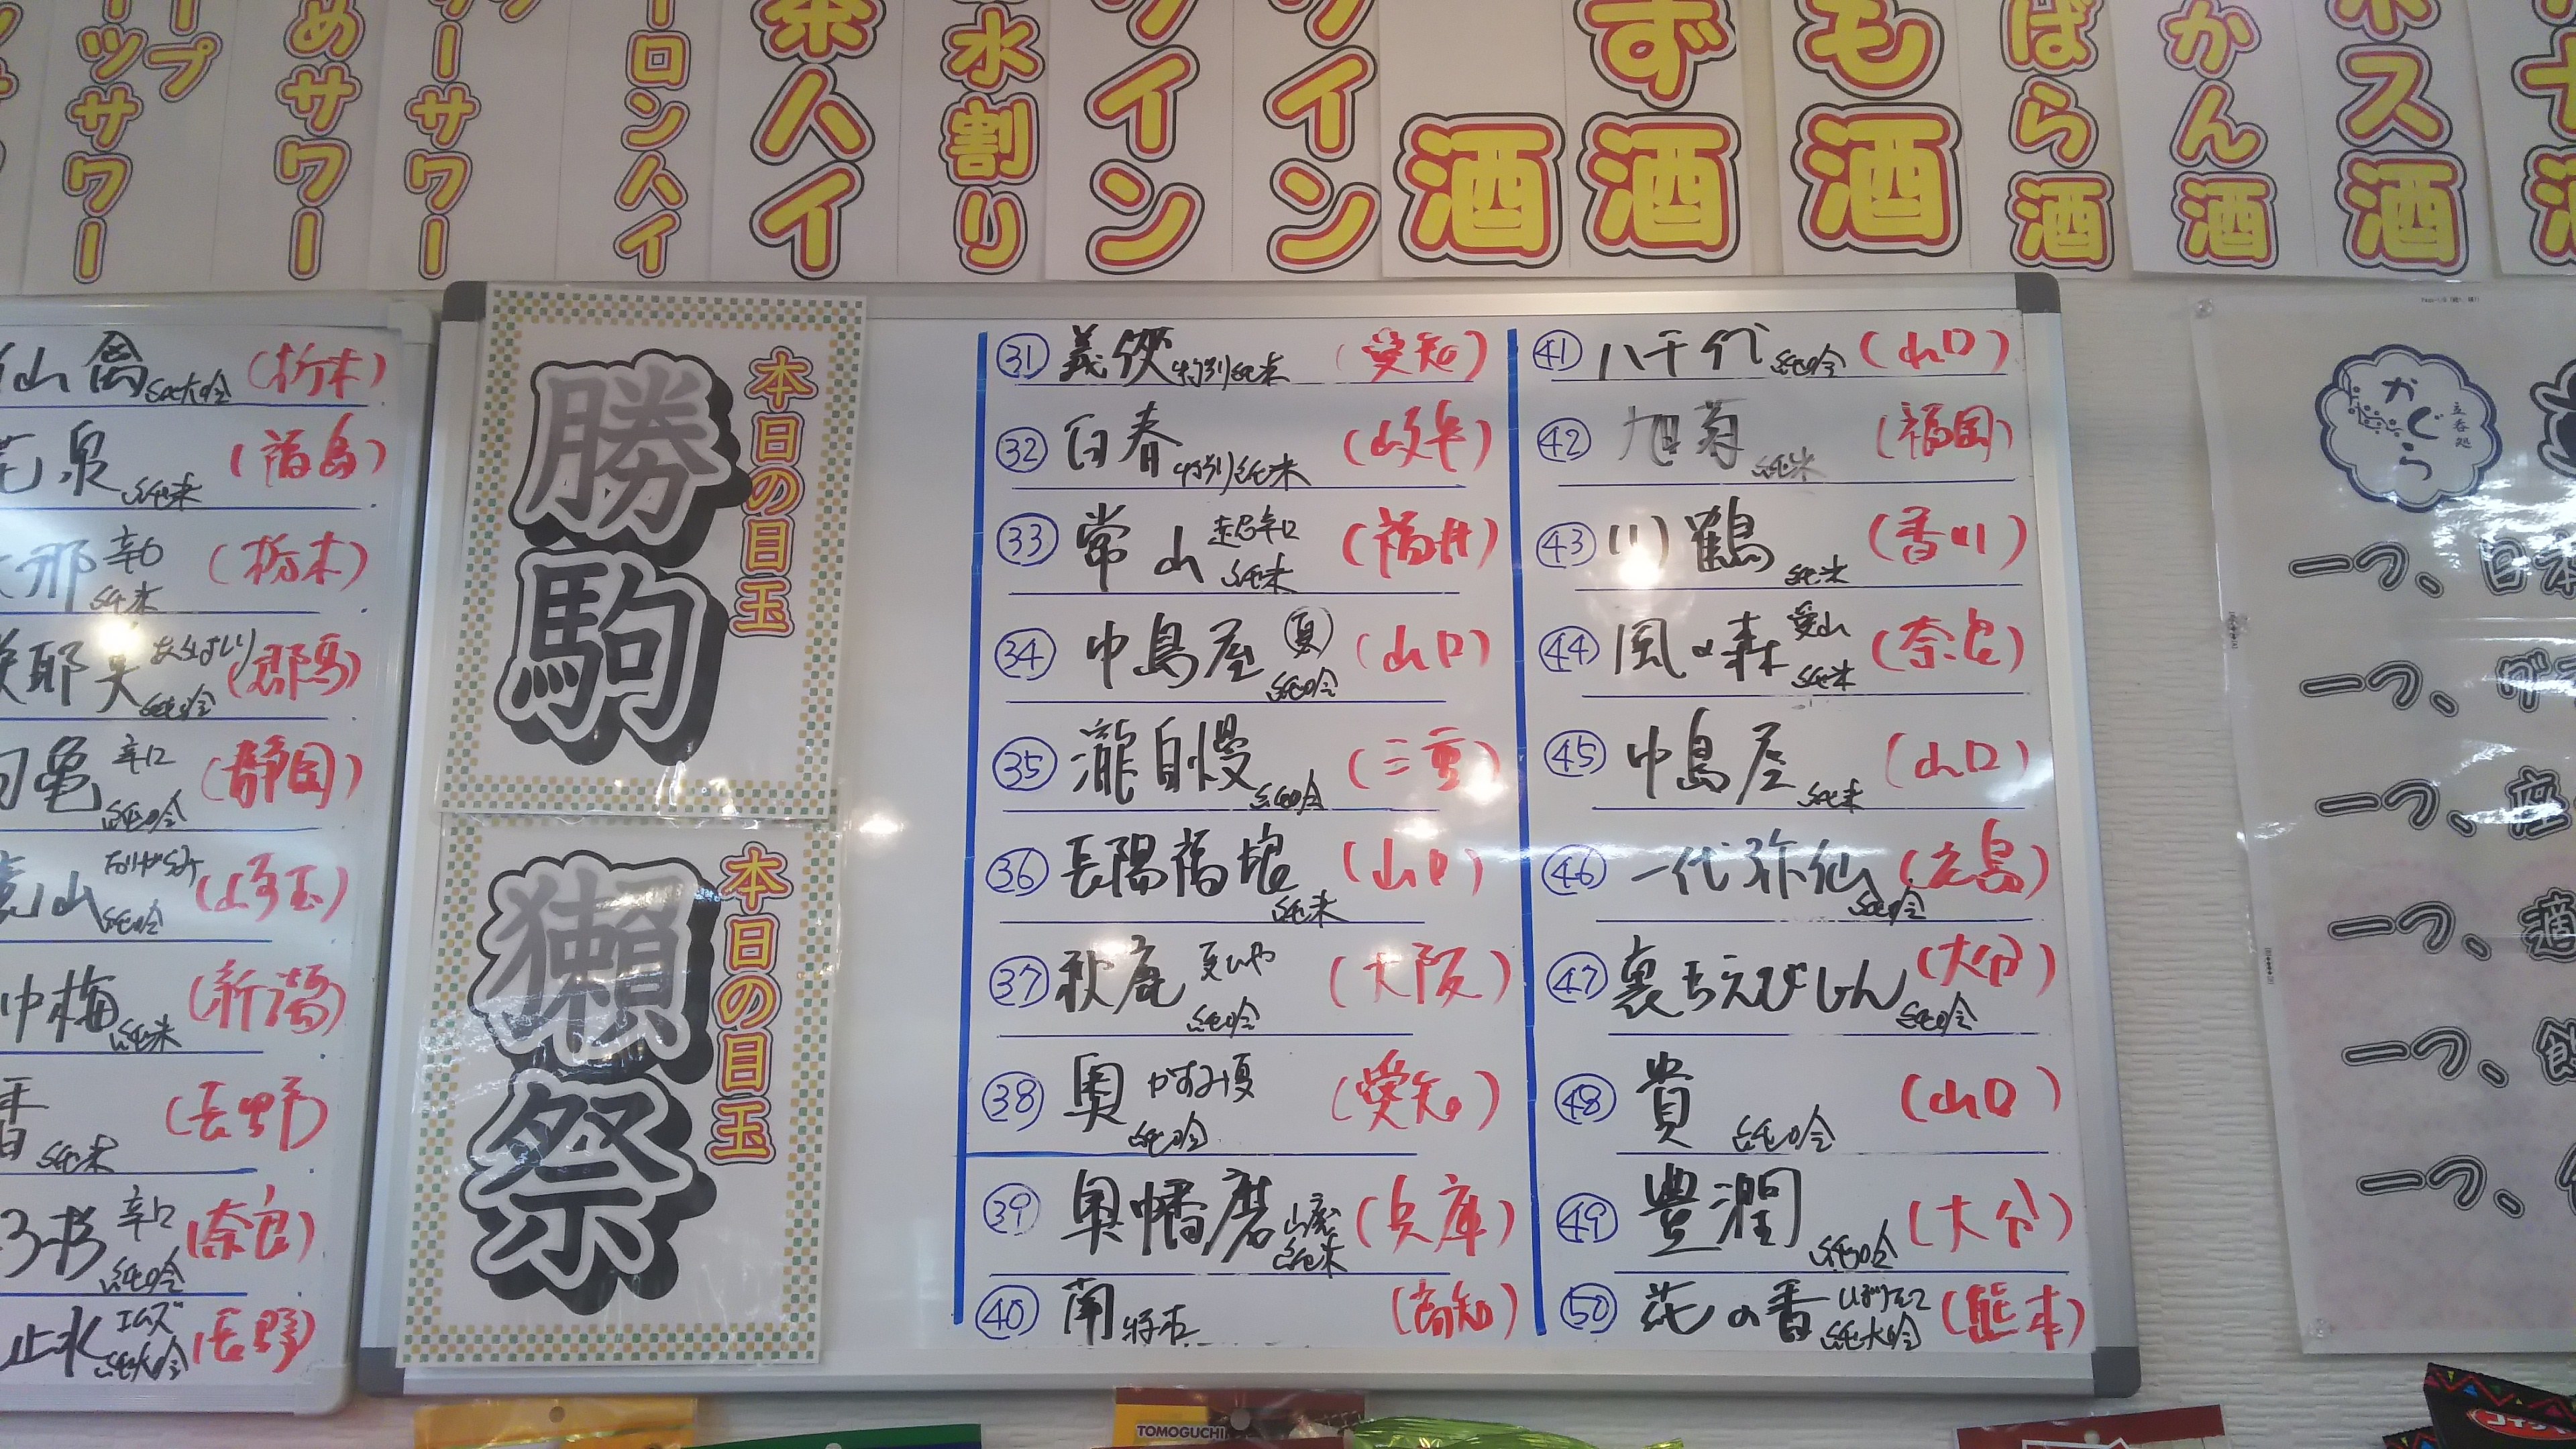 プ
ーツサワー
めサワー
ーサワー
ーロンハイ
茶ハイ
水割り
ワイン
ワイン
酒
ず酒
も酒
ばら酒
かん酒
ボス酒
仙禽 純大吟 (栃木)
花泉 純米 (福島)
那 辛口 純米 (栃木)
耶 純吟 (郡馬)
亀 辛口 純吟 (静岡)
山 純吟 (埼玉)
中梅 純米 (新潟)
香 純米 (長野)
辛口 純吟 (奈良)
止水 純大吟 (長野)
本日の目玉
勝駒
本日の目玉
獺祭
31 義侠 特別純米 (愛知)
32 白春 特別純米 (岐阜)
33 常山 超辛口 純米 (福井)
34 中島屋 夏 純吟 (山口)
35 瀧自慢 純吟 (三重)
36 長陽福娘 純米 (山口)
37 秋鹿 純吟 (大阪)
38 奥 かすみ夏 純吟 (愛知)
39 奥幡磨 山廃 純米 (兵庫)
40 南 特本 (高知)
41 八千代 純吟 (山口)
42 旭菊 純米 (福岡)
43 川鶴 純米 (香川)
44 風の森 愛山 純米 (奈良)
45 中島屋 純米 (山口)
46 一代弥仙 純吟 (広島)
47 裏ちえびじん 純吟 (大分)
48 貴 純吟 (山口)
49 豊潤 純吟 (大分)
50 花の香 しぼりたて 純大吟 (熊本)
立呑処
かぐら
一つ、日本
一つ、グ
一つ、座
一つ、適
一つ、飲
一つ、
TOMOGUCHI